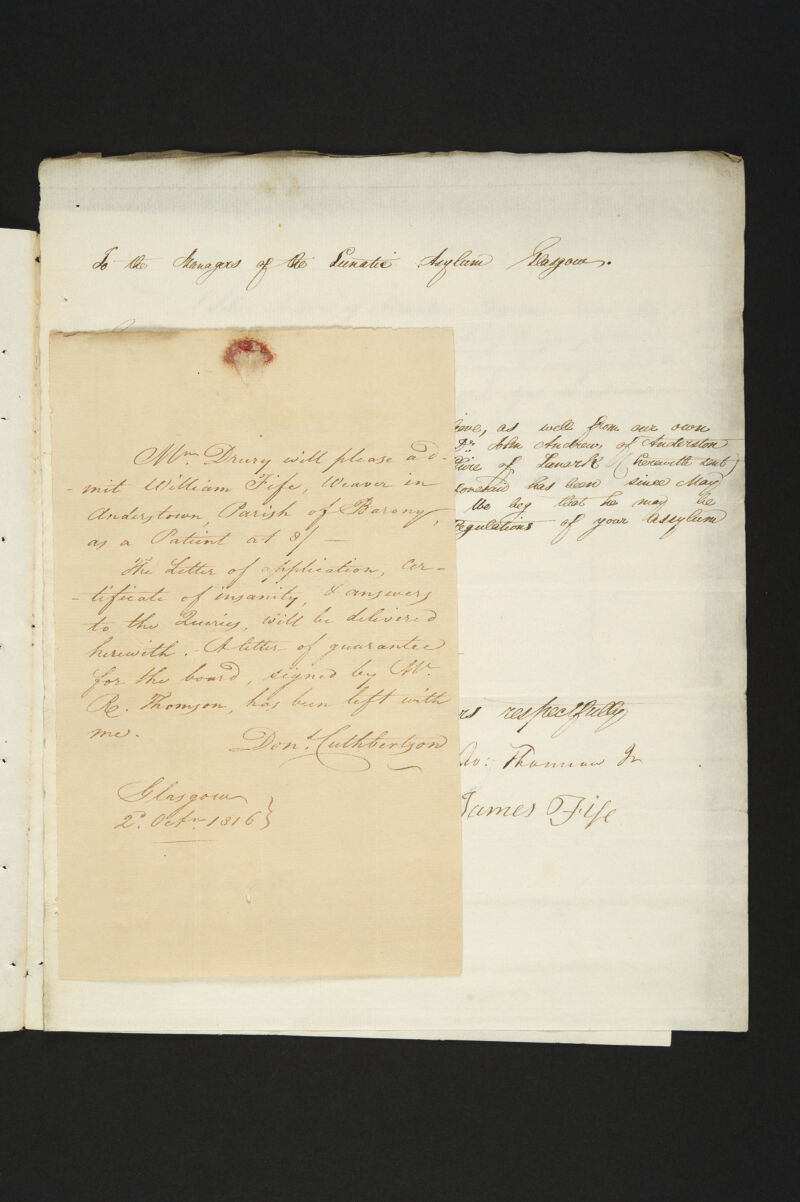 To the Managers of the Lunatic Asylum Glasgow.
Mr. Drury will please ad-
-mit William Fife, Weaver in
Anderstown, Parish of Barony,
as a Patient at 8/—
The Letter of application, cer-
-tificate of insanity, & answers
to the Queries, will be delivered
herewith. A letter of guarantee
for the board, signed by Mr.
R. Thomson, has been left with
me.
Don.d Cuthbertson
Glasgow
2d. Octr. 1816}
as well from our own
Dr. John Andrew of Anderston
of Lanark (herewith sent)
has been since May
We beg that he may be
regulations of your Assylum
respectfully
Thomson Jr
James Fife